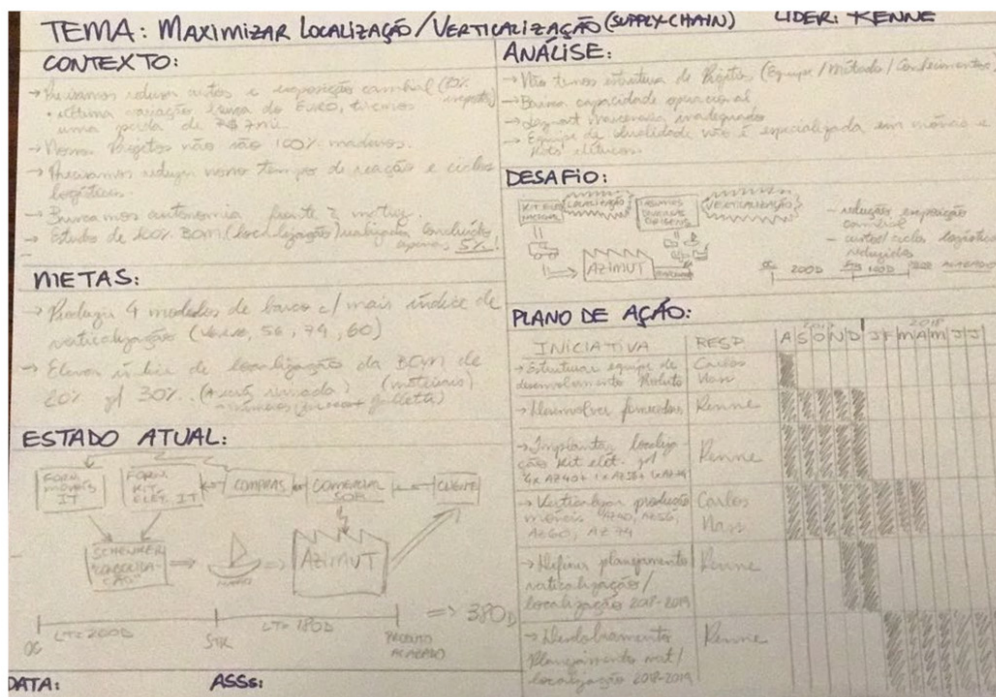 TEMA: MAXIMIZAR LOCALIZAÇÃO/VERTICALIZAÇÃO (SUPPLY-CHAIN) LIDER: RENNE
CONTEXTO:
→ Precisamos reduzir custos e exposição cambial (
• última variação do Euro, tivemos
uma perda de R$ 7mi
→ Nossos Projetos não são 100% maduros.
→ Precisamos reduzir nosso tempo de reação e ciclos
logísticos.
→ Buscamos autonomia frente à matriz.
→ Estudo de 100% BOM (localização) concluídos
apenas 5%!
METAS:
→ Produzir 4 modelos de barco c/ mais índice de
verticalização ( 56, 74, 60)
→ Elevar índice de localização da BOM de
20% p/ 30%. (materiais)
ESTADO ATUAL:
FORN MÓVEIS IT
FORN KIT ELET. IT
COMPRAS
COMERCIAL
CLIENTE
SCHENKER
"CONSOLIDAÇÃO"
NAVIO
AZIMUT
OC LT= 200D STR LT= 180D PRODUTO ACABADO ⇒ 380D
DATA: ASSS:
ANÁLISE:
→ Não temos estrutura de Projetos (Equipe/Método/Conhecimentos)
→ Baixa capacidade operacional
→ Layout marcenaria inadequado
→ Equipe de qualidade não é especializada em móveis e
kits elétricos.
DESAFIO:
LOCALIZAÇÃO
VERTICALIZAÇÃO
AZIMUT
- redução exposição
cambial
- custos/ciclos logísticos
reduzidos
200D 180D ACABADO
PLANO DE AÇÃO:
2018
INICIATIVA RESP A S O N D J F M A M J J
→ Estruturar equipe de Carlos
desenvolvimento Produto
→ Desenvolver fornecedores Renne
→ Implantar localiza- Renne
ção kit elet. p/
→ Verticalizar produção Carlos
móveis AZ40, AZ56,
AZ60, AZ74
→ Definir planejamento Renne
verticalização/
localização 2018-2019
→ Desdobramento Renne
Planejamento
localização 2018-2019